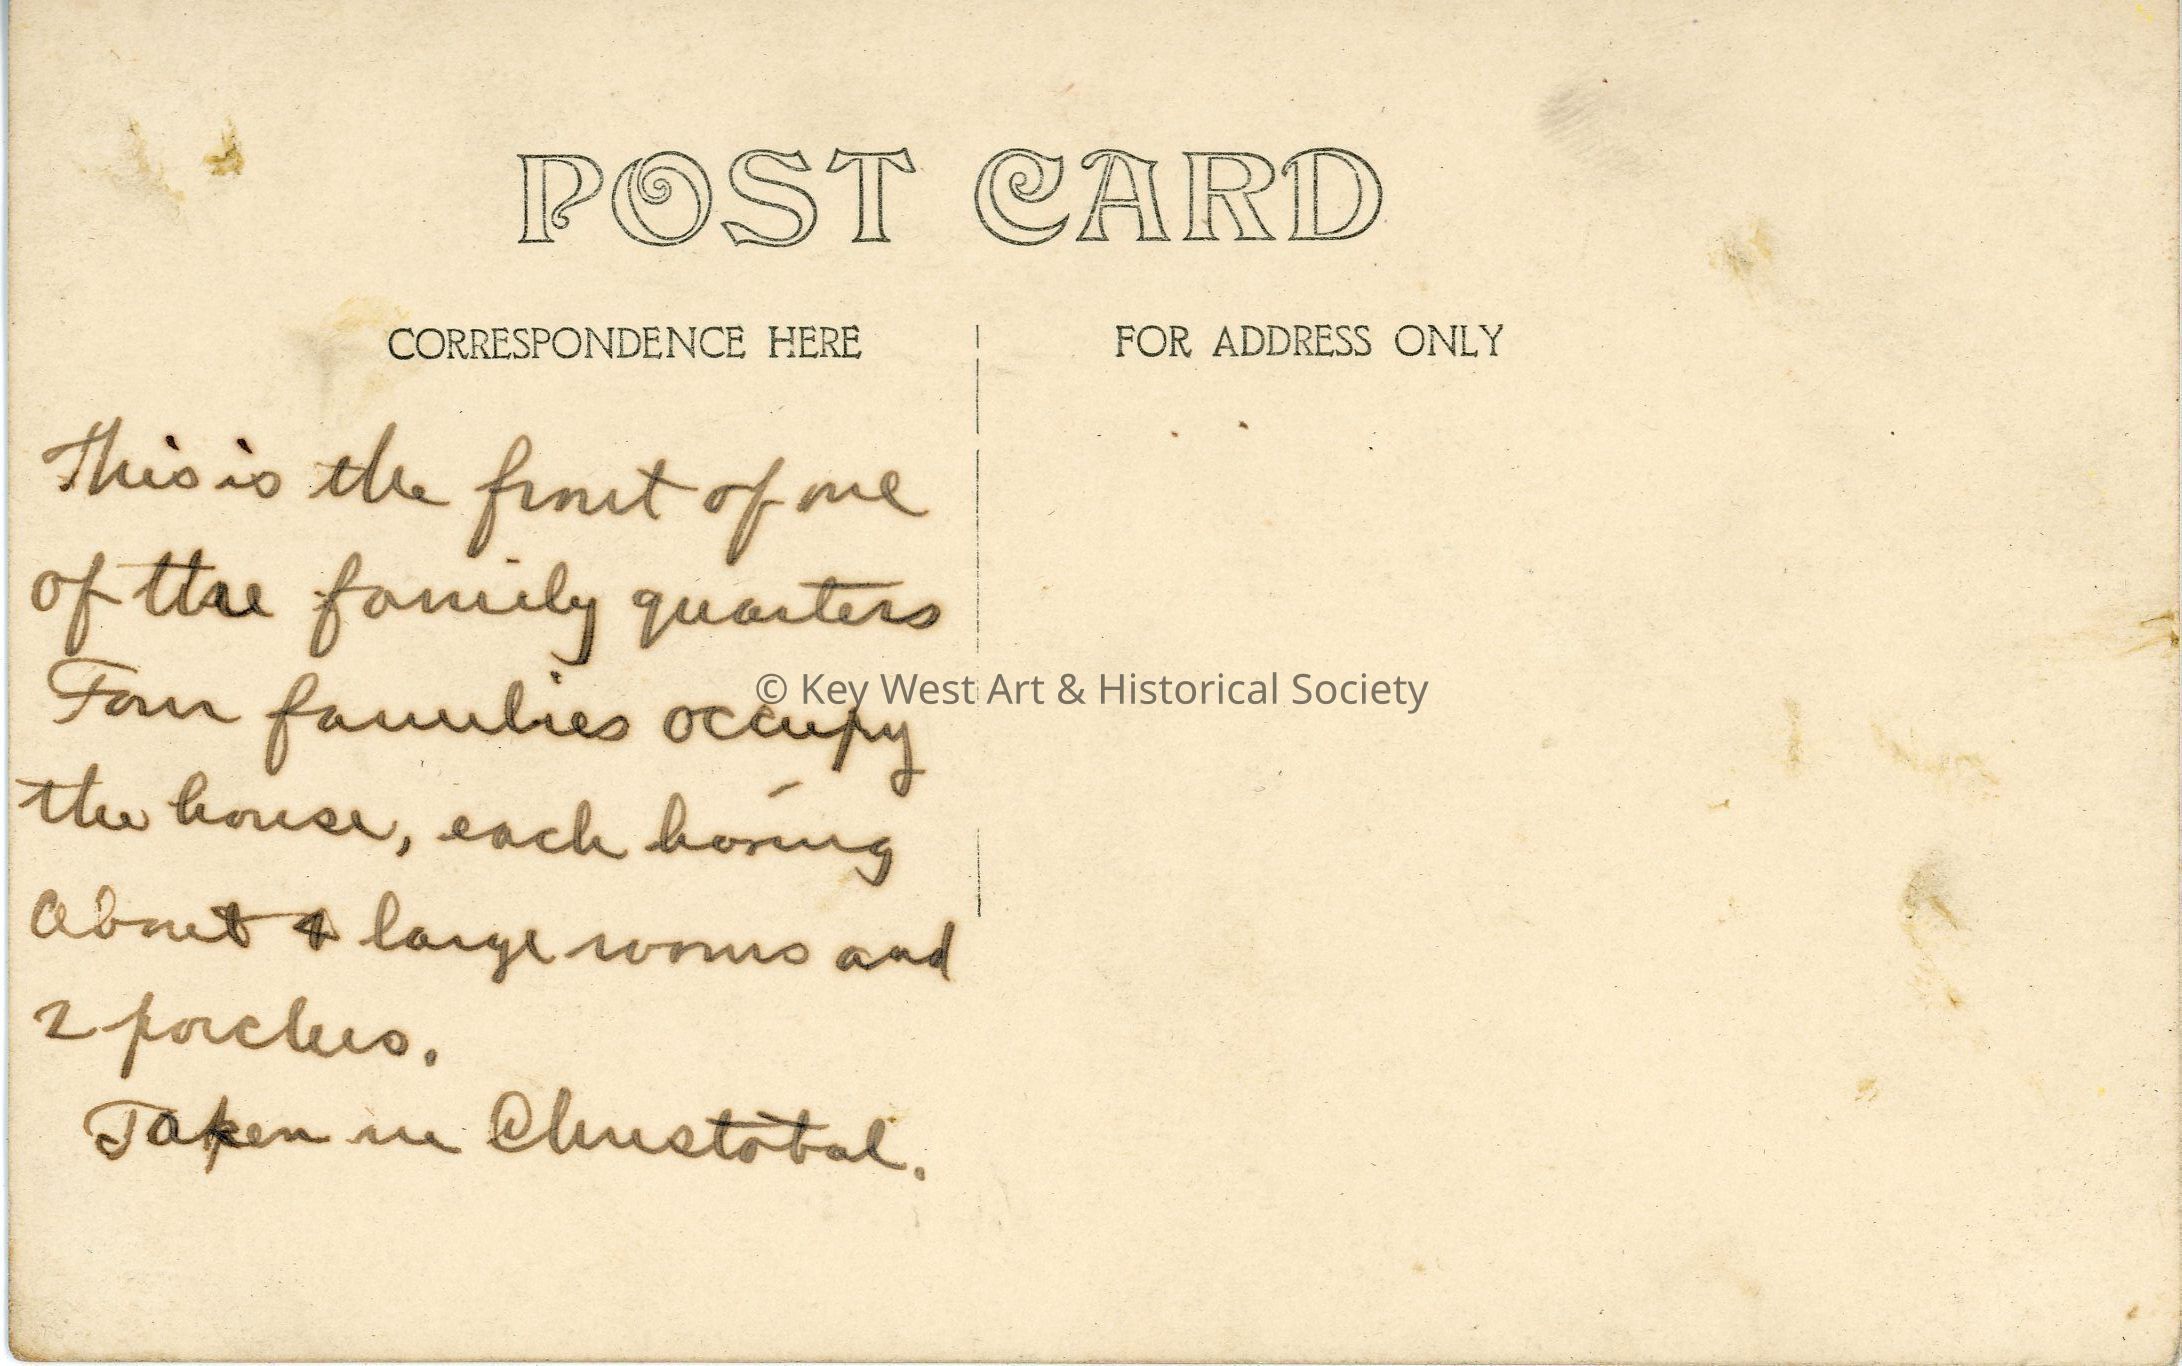 POST CARD
CORRESPONDENCE HERE
FOR ADDRESS ONLY
This is the front of one
of the family quarters
Four families occupy
the house, each having
about 4 large rooms and
2 porches.
Taken in Christobal.
© Key West Art & Historical Society